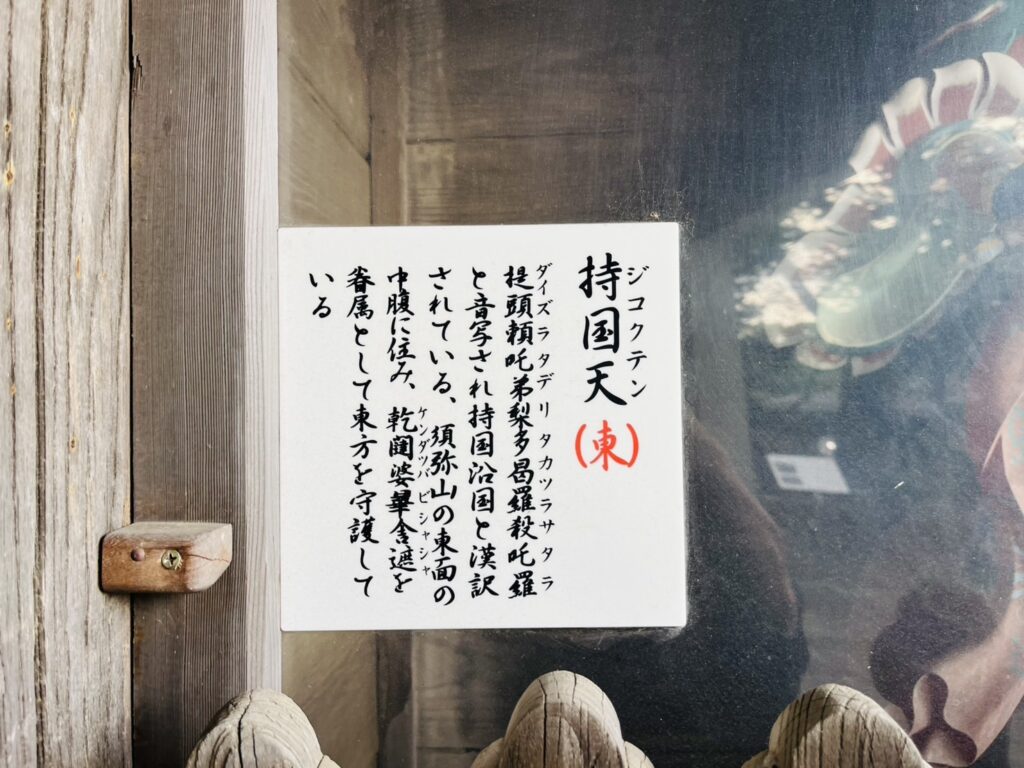 持国天(東)
ジコクテン
提頭頼吒弟梨多曷羅殺吒羅
ダイズラタデリタカツラサタラ
と音写され持国沿国と漢訳
されている、須弥山の東面の
中腹に住み、乾闥婆畢舎遮を
ケンダツバビシャシャ
眷属として東方を守護して
いる